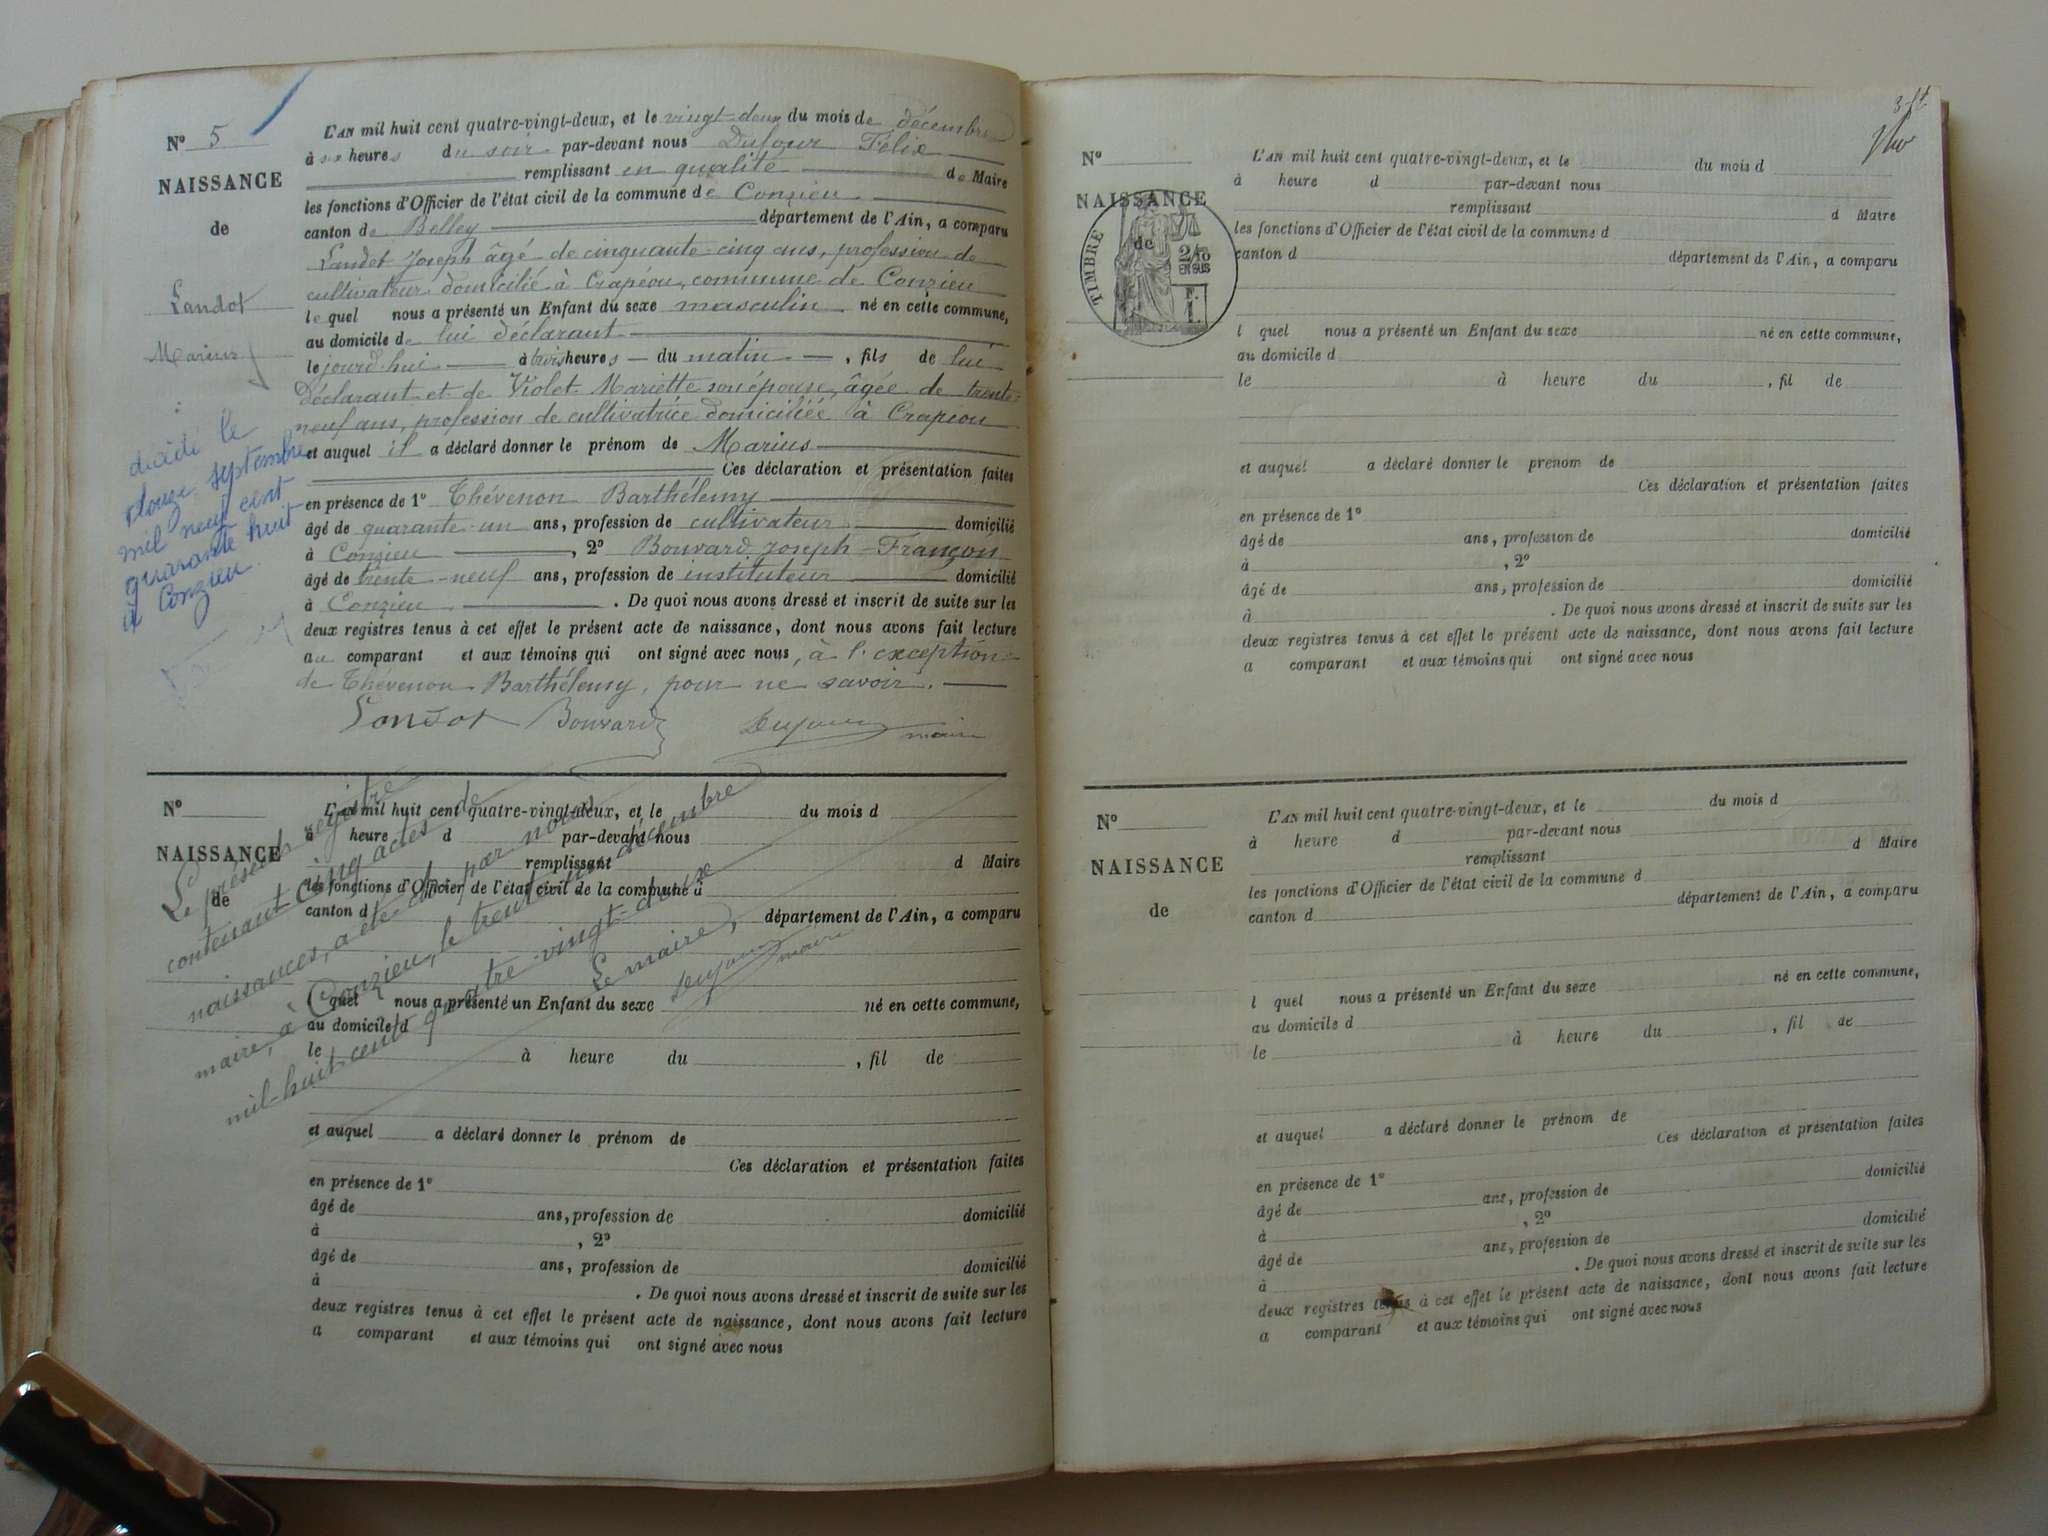 N° 5
NAISSANCE
de
Landot
Marius
décédé le
douze septembre
mil neuf cent
quarante huit
à Conzieu
L'AN mil huit cent quatre-vingt-deux, et le vingt-deux du mois de décembre
à six heures du soir par-devant nous Dufour Félix
remplissant en qualité de Maire
les fonctions d'Officier de l'état civil de la commune de Conzieu
canton de Belley département de l'Ain, a comparu
Landot Joseph âgé de cinquante-cinq ans, profession de
cultivateur domicilié à Crapéou, commune de Conzieu
lequel nous a présenté un Enfant du sexe masculin né en cette commune,
au domicile de lui déclarant
le jourd'hui à trois heures du matin, fils de lui
Déclarant et de Violet Mariette son épouse, âgée de trente-
neuf ans, profession de cultivatrice domiciliée à Crapéou
et auquel il a déclaré donner le prénom de Marius
Ces déclaration et présentation faites
en présence de 1° Thévenon Barthélemy
âgé de quarante-un ans, profession de cultivateur domicilié
à Conzieu, 2° Bouvard Joseph-François
âgé de trente-neuf ans, profession de instituteur domicilié
à Conzieu. De quoi nous avons dressé et inscrit de suite sur les
deux registres tenus à cet effet le présent acte de naissance, dont nous avons fait lecture
au comparant et aux témoins qui ont signé avec nous, à l'exception
de Thévenon Barthélemy, pour ne savoir.
Landot Bouvard Dufour maire
N°
NAISSANCE
de
L'AN mil huit cent quatre-vingt-deux, et le du mois d
à heure d par-devant nous
remplissant d Maire
les fonctions d'Officier de l'état civil de la commune d
canton d département de l'Ain, a comparu
l quel nous a présenté un Enfant du sexe né en cette commune,
au domicile d
le à heure du , fil de
et auquel a déclaré donner le prénom de
Ces déclaration et présentation faites
en présence de 1°
âgé de ans, profession de domicilié
à , 2°
âgé de ans, profession de domicilié
à . De quoi nous avons dressé et inscrit de suite sur les
deux registres tenus à cet effet le présent acte de naissance, dont nous avons fait lecture
a comparant et aux témoins qui ont signé avec nous
Le présent registre
contenant cinq actes de
naissances, a été clos par nous
maire, à Conzieu, le trente un décembre
mil-huit cent quatre-vingt-deux
Le maire,
Dufour maire
N°
NAISSANCE
de
TIMBRE
2/10
EN SUS
L'AN mil huit cent quatre-vingt-deux, et le du mois d
à heure d par-devant nous
remplissant d Maire
les fonctions d'Officier de l'état civil de la commune d
canton d département de l'Ain, a comparu
l quel nous a présenté un Enfant du sexe né en cette commune,
au domicile d
le à heure du , fil de
et auquel a déclaré donner le prénom de
Ces déclaration et présentation faites
en présence de 1°
âgé de ans, profession de domicilié
à , 2°
âgé de ans, profession de domicilié
à . De quoi nous avons dressé et inscrit de suite sur les
deux registres tenus à cet effet le présent acte de naissance, dont nous avons fait lecture
a comparant et aux témoins qui ont signé avec nous
N°
NAISSANCE
de
L'AN mil huit cent quatre-vingt-deux, et le du mois d
à heure d par-devant nous
remplissant d Maire
les fonctions d'Officier de l'état civil de la commune d
canton d département de l'Ain, a comparu
l quel nous a présenté un Enfant du sexe né en cette commune,
au domicile d
le à heure du , fil de
et auquel a déclaré donner le prénom de
Ces déclaration et présentation faites
en présence de 1°
âgé de ans, profession de domicilié
à , 2°
âgé de ans, profession de domicilié
à . De quoi nous avons dressé et inscrit de suite sur les
deux registres tenus à cet effet le présent acte de naissance, dont nous avons fait lecture
a comparant et aux témoins qui ont signé avec nous